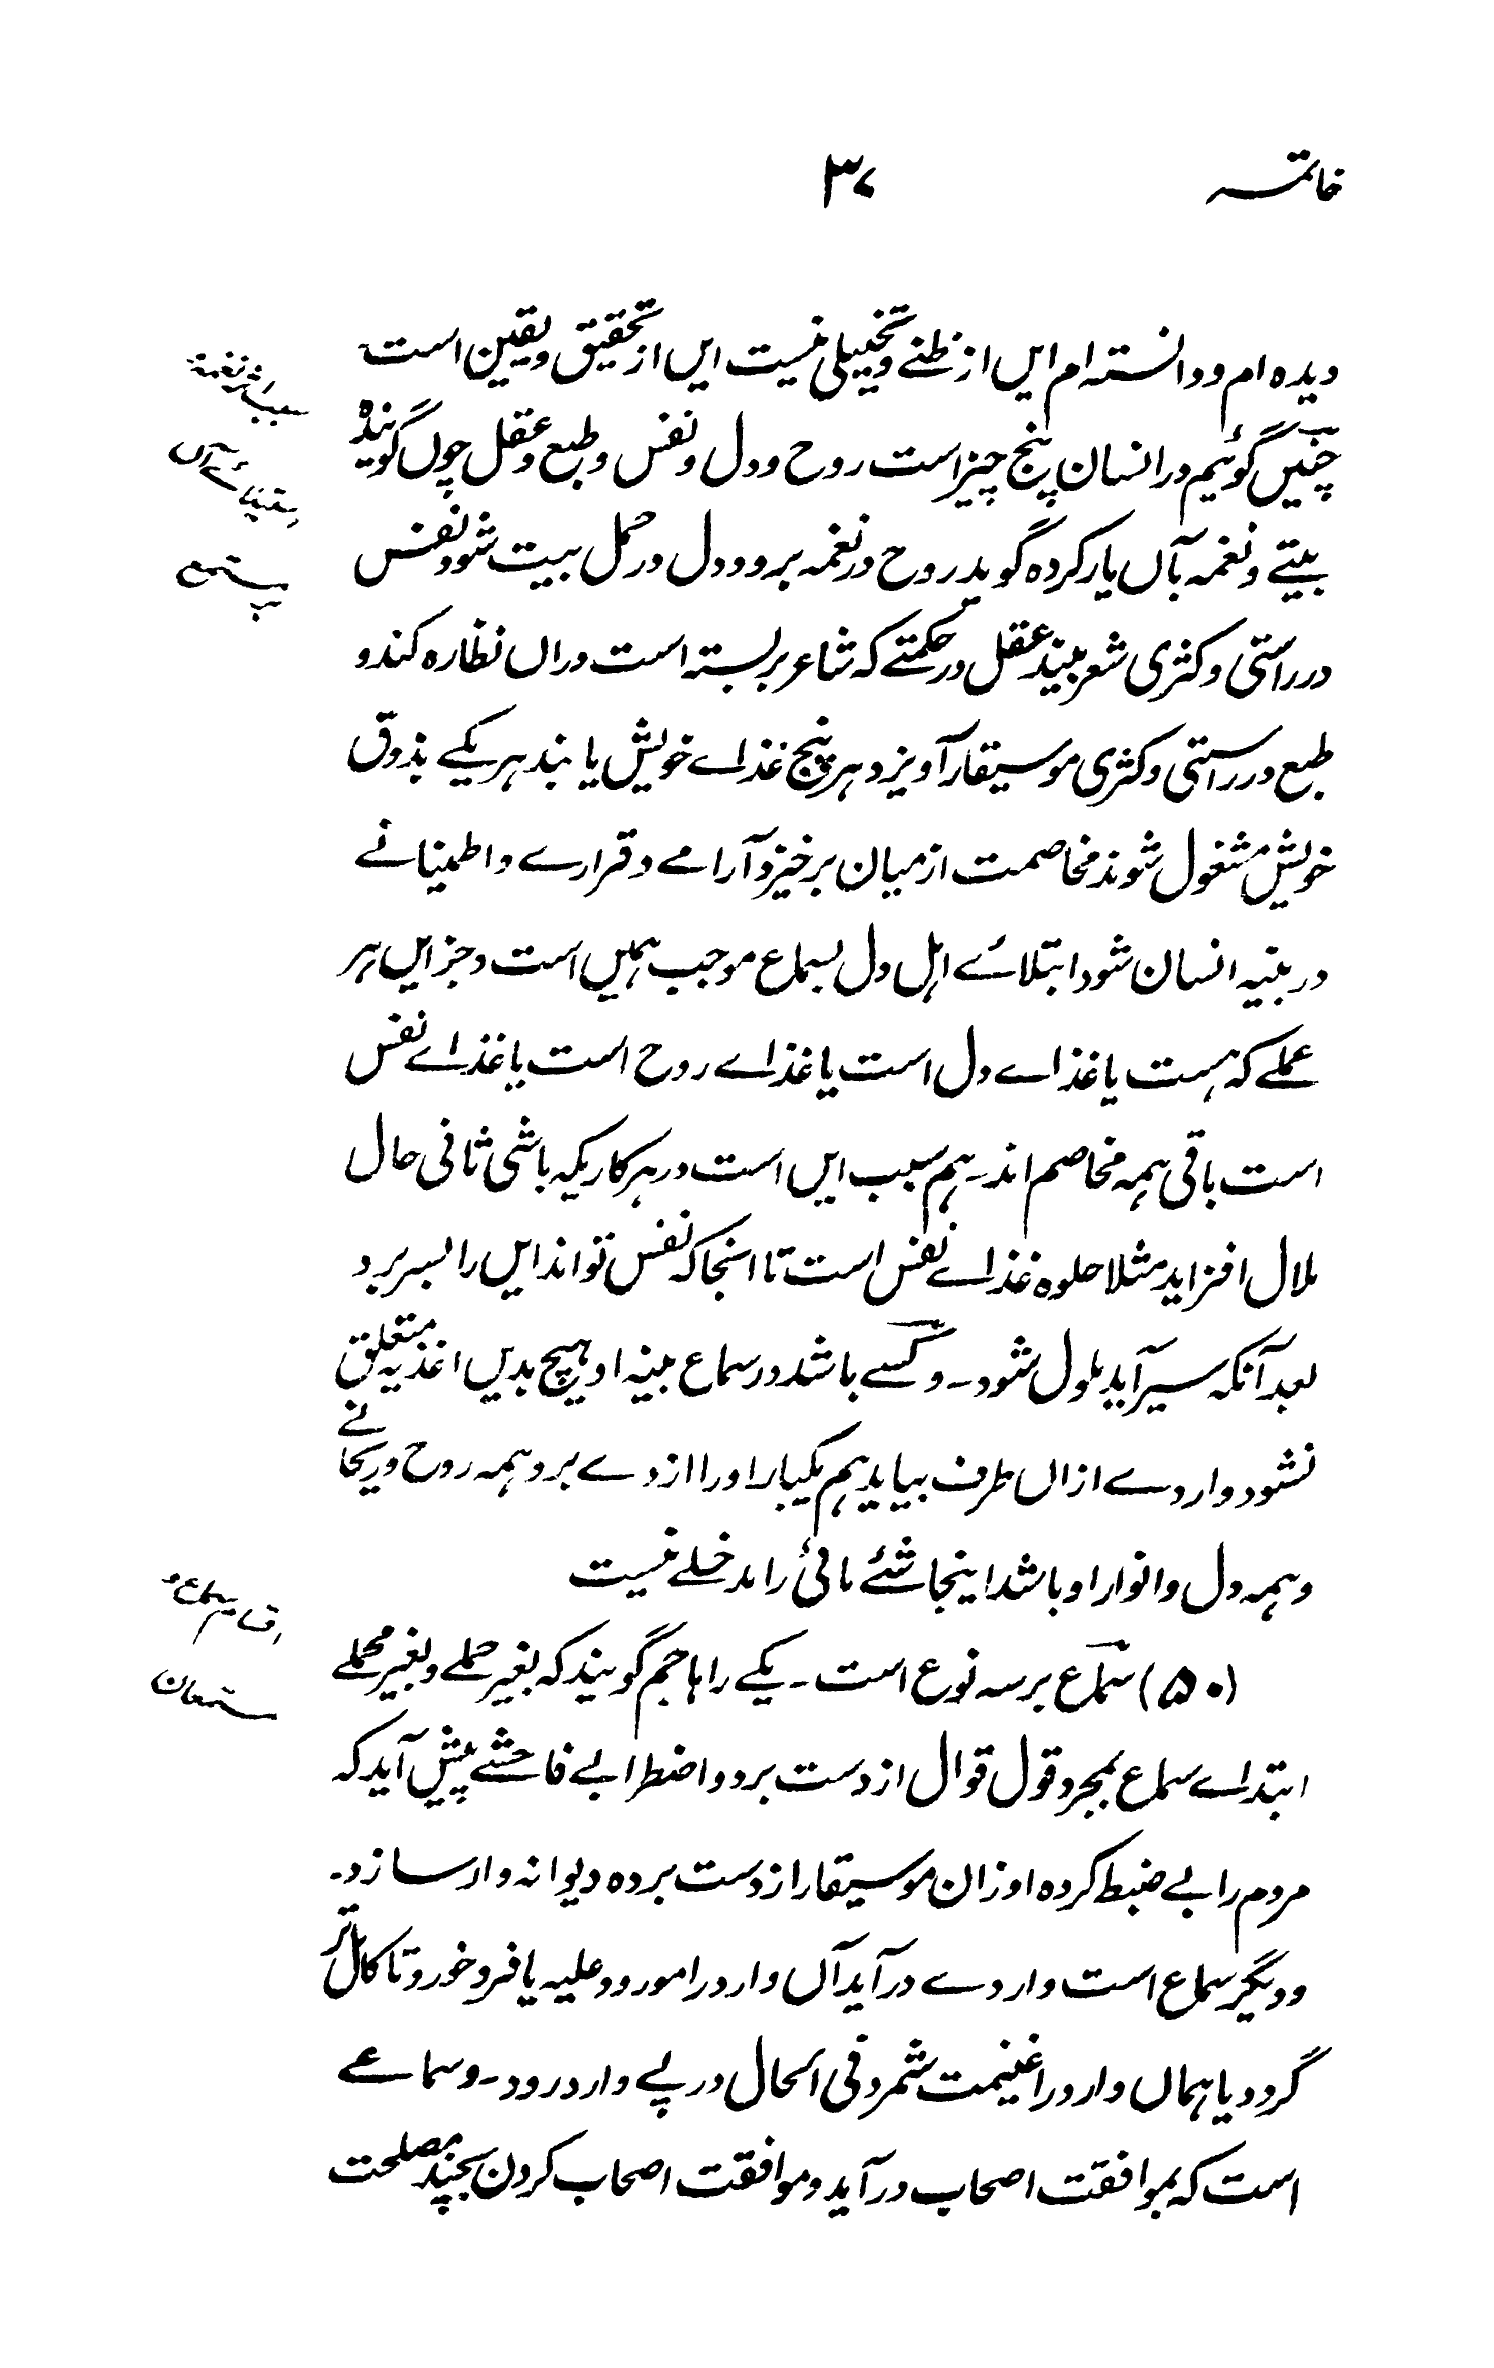 خاتمه ۳۷
دیده ام و دانسته ام ایں از ظنے و تخییلی نیست ایں از تحقیق و یقین است
چنیں گوئیم در انسان پنج چیز است روح و دل و نفس و طبع و عقل چوں گوینده
بیتے و نغمه بآں یار کرده گوید روح در نغمه برود و دل در حمل بیت شود نفس
در راستی و کژی شعر بیند عقل در حکمتے که شاعر بر بسته است دراں نظاره کند و
طبع در راستی و کژی موسیقار آویزد هر پنج غذاے خویش یابند هر یکے بذوق
خویش مشغول شوند مخاصمت از میان برخیزد آرامے و قرارے و اطمینانے
در بنیه انسان شود ابتلاے اهل دل بسماع موجب همیں است و جز ایں هر
عملے که هست یا غذاے دل است یا غذاے روح است یا غذاے نفس
است باقی همه مخاصم اند۔ هم سبب ایں است در هر کاریکه باشی ثانی حال
ملال افزاید مثلا حلوه غذاے نفس است تا انجا که نفس تواند ایں را بسر برد
بعد آنکه سیر آید ملول شود۔ و کسے باشد در سماع بینه او هیچ بدیں اغذیه متعلق
نشود واردے ازاں طرف بیاید هم یکبار او را از دے برد همه روح و ریحانے
و همه دل و انوار او باشد اینجا شئے مافی را مدخلے نیست
(۵۰) سماع بر سه نوع است۔ یکے را هاجم گویند که بغیر حملے و بغیر محملے
ابتداے سماع بمجرد قول قوال از دست برد و اضطرابے فاحشے پیش آید که
مردم را بے ضبط کرده اوزان موسیقار از دست برده دیوانه وار سازد۔
و دیگر سماع است واردے در آید آں وارد را مورود علیه یا فرو خورد تا کالباتر
گردد یا هماں وارد را غنیمت شمرد فی الحال در پے وارد رود۔ و سماعے
است که بموافقت اصحاب در آید و موافقت اصحاب کردن بچند مصلحت
سبب اثر نغمه
آں
مستمع
اقسام سماع و
مستمعان